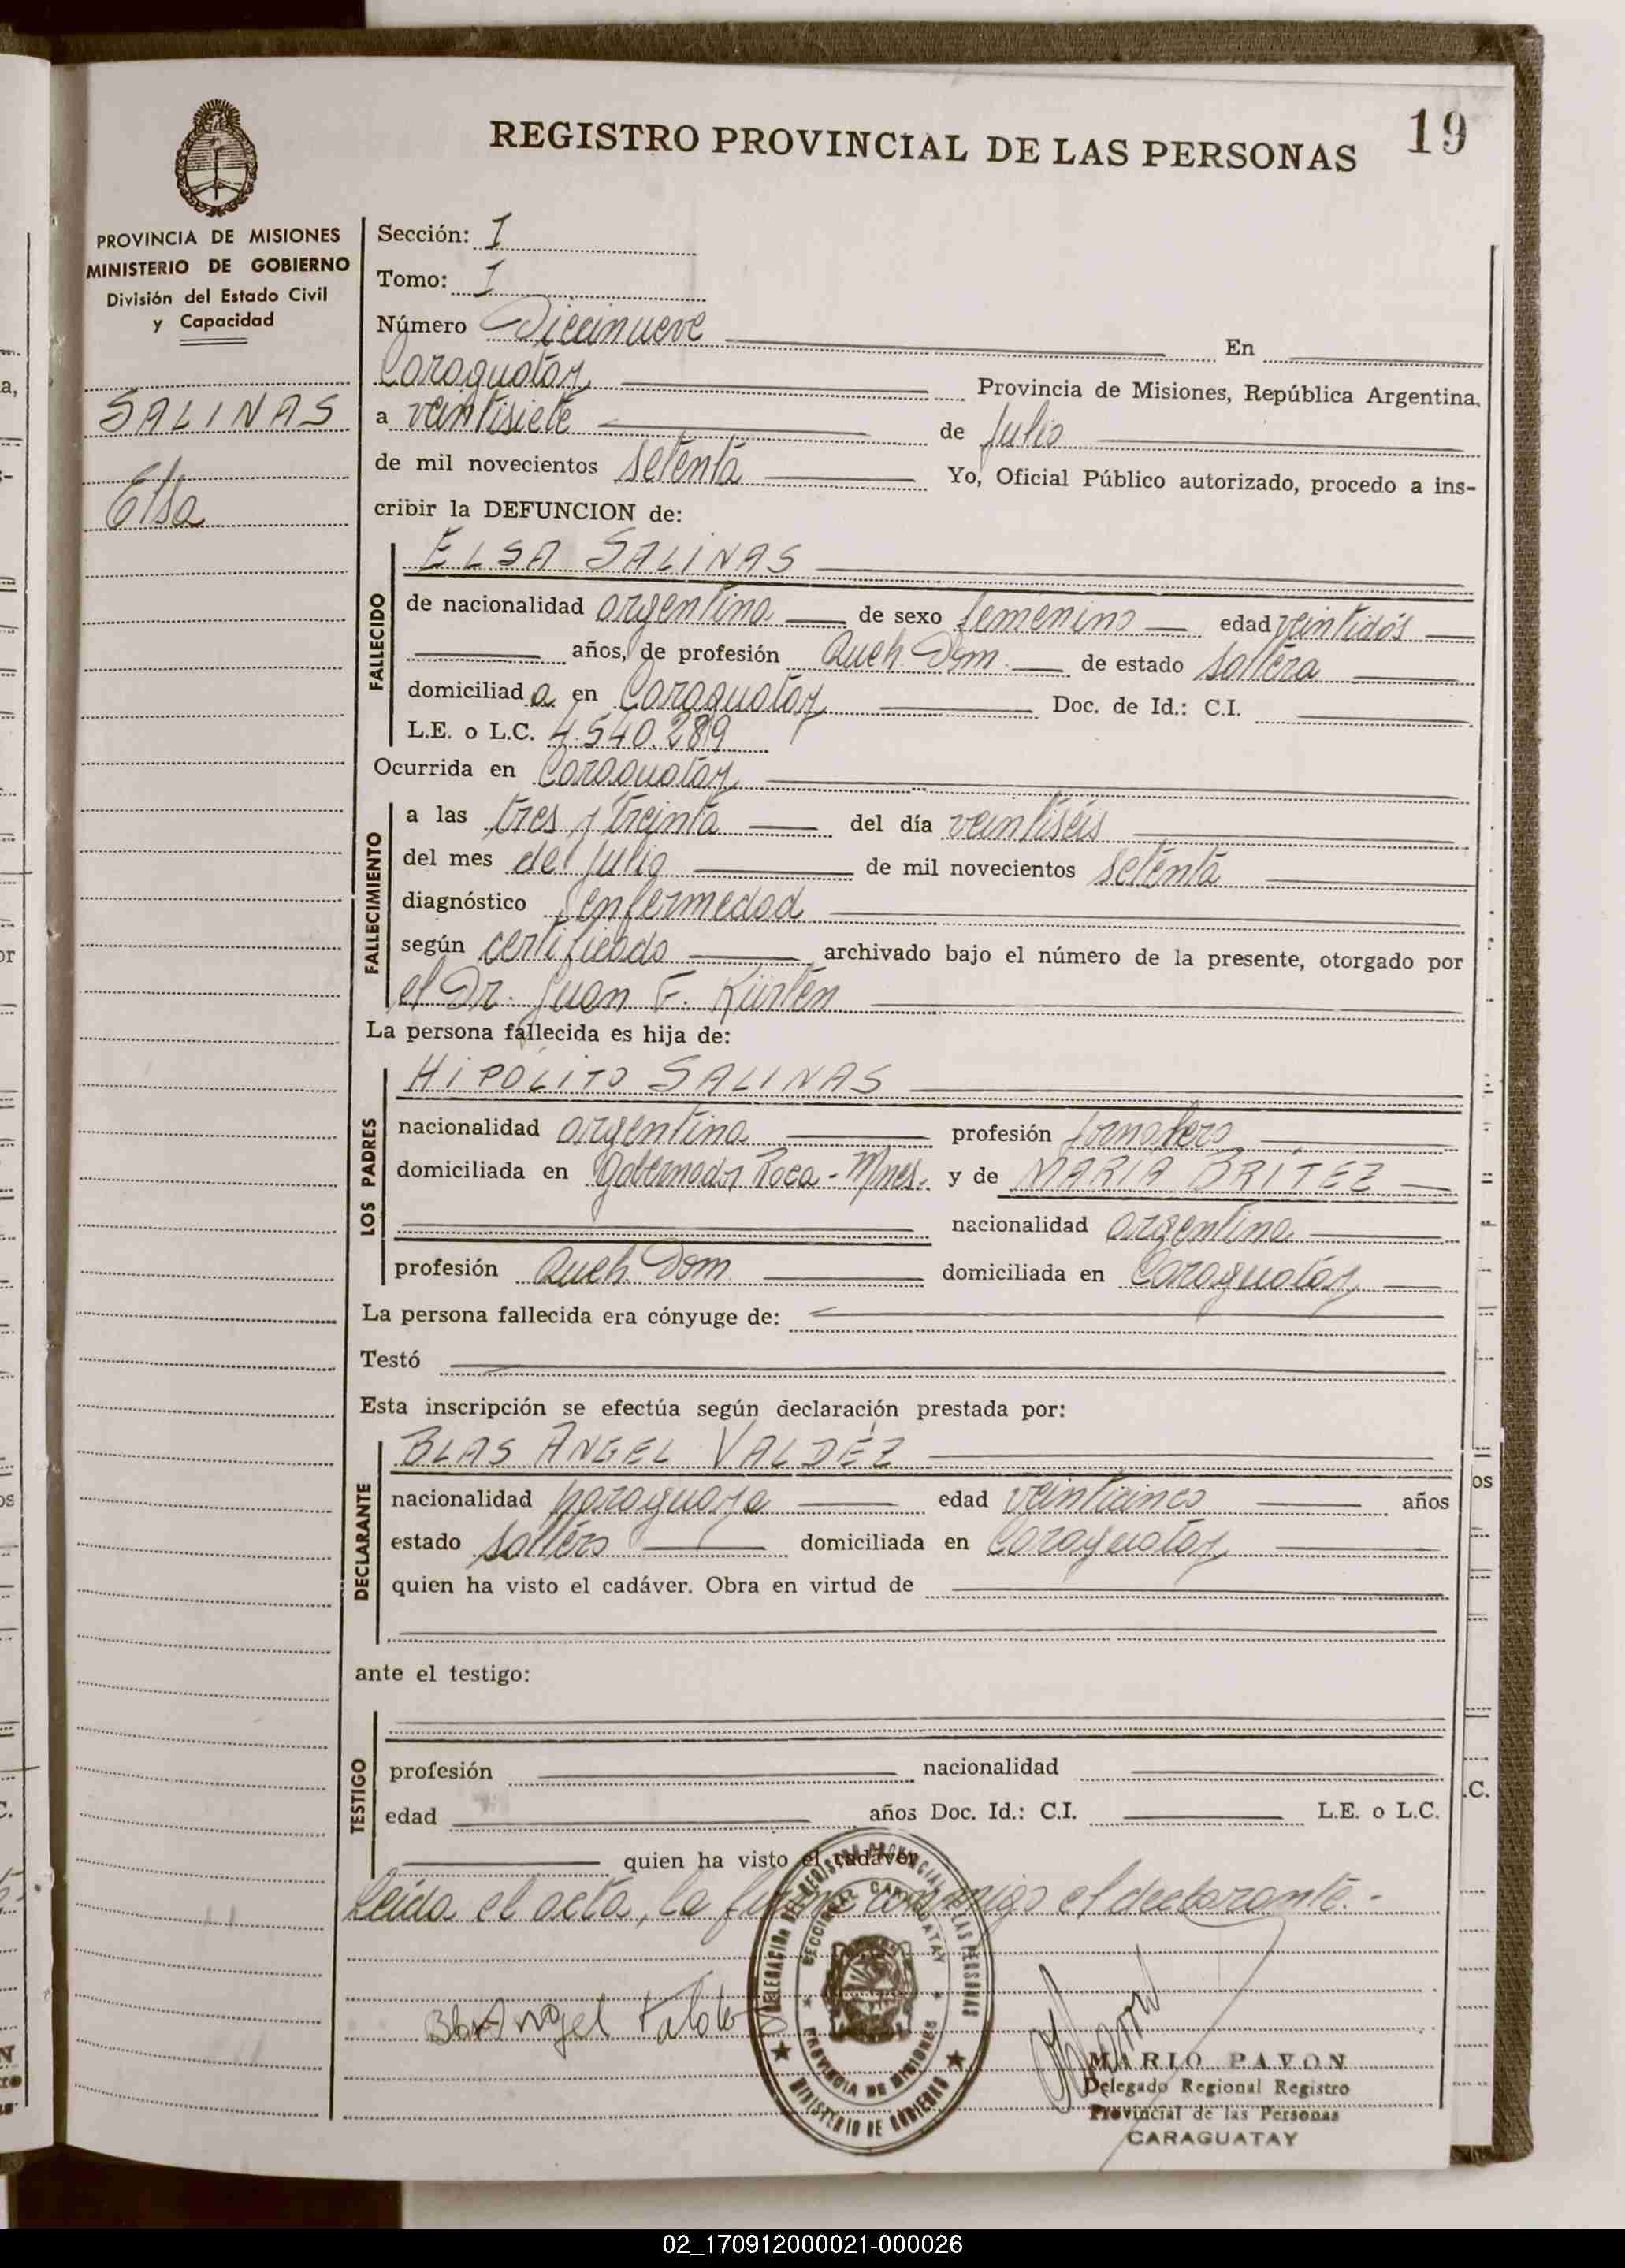 REGISTRO PROVINCIAL DE LAS PERSONAS 19
PROVINCIA DE MISIONES
MINISTERIO DE GOBIERNO
División del Estado Civil
y Capacidad
SALINAS
Elsa
Sección: I
Tomo: I
Número Diecinueve En
Caraguatay Provincia de Misiones, República Argentina,
a veintisiete de Julio
de mil novecientos setenta Yo, Oficial Público autorizado, procedo a ins-
cribir la DEFUNCION de:
FALLECIDO
ELSA SALINAS
de nacionalidad argentina de sexo femenino edad veintidós
años, de profesión Queh. Dom. de estado soltera
domiciliada en Caraguatay Doc. de Id.: C.I.
L.E. o L.C. 4.540.289
Ocurrida en Caraguatay
FALLECIMIENTO
a las tres y treinta del día veintiséis
del mes de Julio de mil novecientos setenta
diagnóstico enfermedad
según certificado archivado bajo el número de la presente, otorgado por
el Dr. Juan F. Kürten
La persona fallecida es hija de:
LOS PADRES
HIPOLITO SALINAS
nacionalidad argentina profesión Jornalero
domiciliada en Gobernador Roca - Mnes. y de MARIA BRITEZ
nacionalidad argentina
profesión Queh Dom. domiciliada en Caraguatay
La persona fallecida era cónyuge de:
Testó
Esta inscripción se efectúa según declaración prestada por:
DECLARANTE
BLAS ANGEL VALDÉZ
nacionalidad paraguaya edad veinticinco años
estado soltero domiciliada en Caraguatay
quien ha visto el cadáver. Obra en virtud de
ante el testigo:
TESTIGO
profesión nacionalidad
edad años Doc. Id.: C.I. L.E. o L.C.
quien ha visto el cadáver
Leída el acta, la firma conmigo el declarante.-
DELEGACION DEL REGISTRO PROVINCIAL DE LAS PERSONAS
SECCIONAL CARAGUATAY
PROVINCIA DE MISIONES
MINISTERIO DE GOBIERNO
Blas Angel
MARIO PAVON
Delegado Regional Registro
Provincial de las Personas
CARAGUATAY
02_170912000021-000026